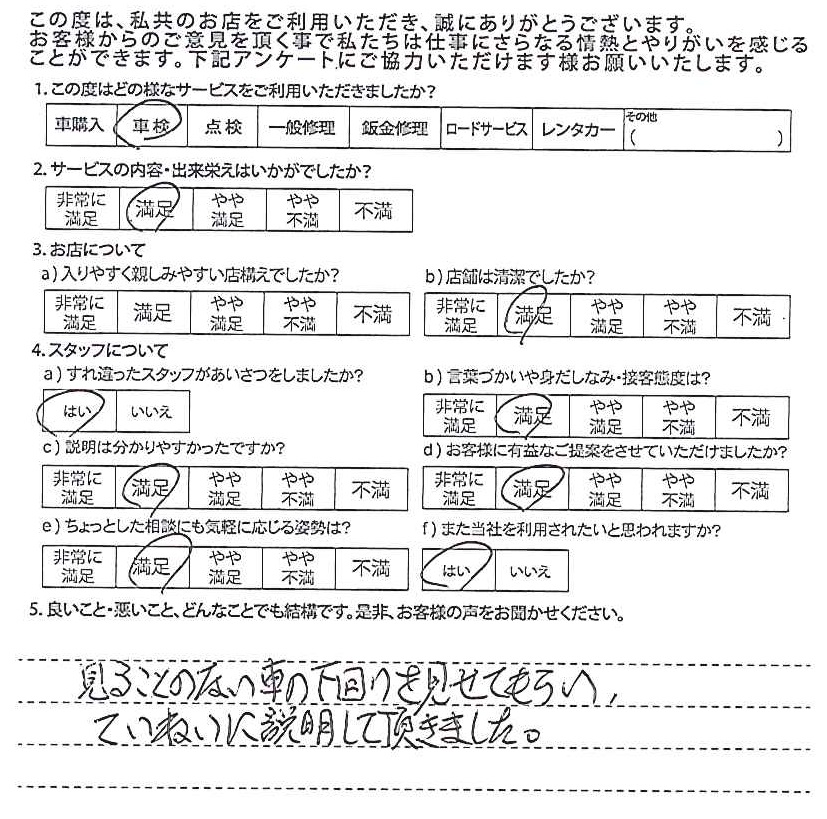 この度は、私共のお店をご利用いただき、誠にありがとうございます。
お客様からのご意見を頂く事で私たちは仕事にさらなる情熱とやりがいを感じる
ことができます。下記アンケートにご協力いただけます様お願いいたします。
1. この度はどの様なサービスをご利用いただきましたか?
車購入 車検 点検 一般修理 鈑金修理 ロードサービス レンタカー その他( )
2. サービスの内容・出来栄えはいかがでしたか?
非常に満足 満足 やや満足 やや不満 不満
3. お店について
a) 入りやすく親しみやすい店構えでしたか?
非常に満足 満足 やや満足 やや不満 不満
b) 店舗は清潔でしたか?
非常に満足 満足 やや満足 やや不満 不満
4. スタッフについて
a) すれ違ったスタッフがあいさつをしましたか?
はい いいえ
b) 言葉づかいや身だしなみ・接客態度は?
非常に満足 満足 やや満足 やや不満 不満
c) 説明は分かりやすかったですか?
非常に満足 満足 やや満足 やや不満 不満
d) お客様に有益なご提案をさせていただけましたか?
非常に満足 満足 やや満足 やや不満 不満
e) ちょっとした相談にも気軽に応じる姿勢は?
非常に満足 満足 やや満足 やや不満 不満
f) また当社を利用されたいと思われますか?
はい いいえ
5. 良いこと・悪いこと、どんなことでも結構です。是非、お客様の声をお聞かせください。
見ることのない車の下回りを見せてもらい,
ていねいに説明して頂きました。